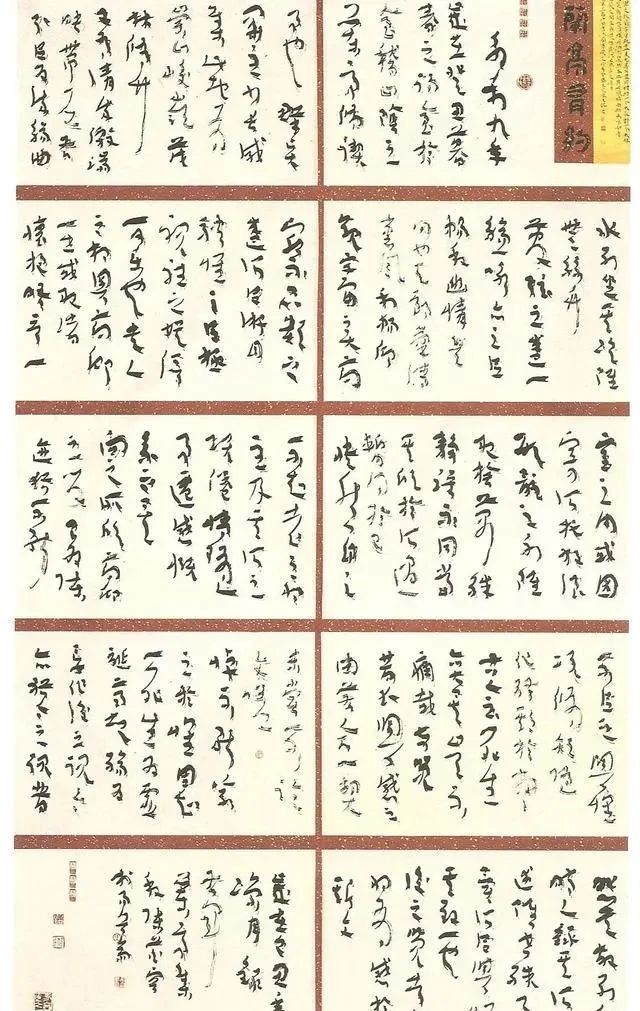 蘭亭音韵
永和九年
歲在癸丑暮
春之初會於
會稽山陰之
蘭亭脩禊
事也群賢
畢至少長咸
集此地有
崇山峻嶺茂
林修竹
又有清流激湍
映帶左右
引以為流觴曲
水列坐其次雖
無絲竹
管弦之盛一
觴一詠亦足以
暢敘幽情是
日也天朗氣清
惠風和暢仰
觀宇宙之大俯
察品類之
盛所以遊目
騁懷足以極
視聽之娛信
可樂也夫人
之相與俯仰
一世或取諸
懷抱晤言一
室之內或因
寄所託放浪
形骸之外雖
趣舍萬殊
靜躁不同當
其欣於所遇
暫得於己
快然自足
不知老之將
至及其所之
既倦情隨
事遷感慨
係之矣
向之所欣俯仰
之間已為陳
跡猶不能
不以之興懷
況脩短隨
化終期於盡
古人云死生
亦大矣豈不
痛哉每覽
昔人興感之
由若合一契
未嘗不臨
文嗟悼
不能喻
之於懷固知
一死生為虛
誕齊彭殤為
妄作後之視今
亦猶今之視昔
悲夫故列
時人錄其所
述雖世殊事
異所以興懷
其致一也
後之覽者
亦將有感於
斯文